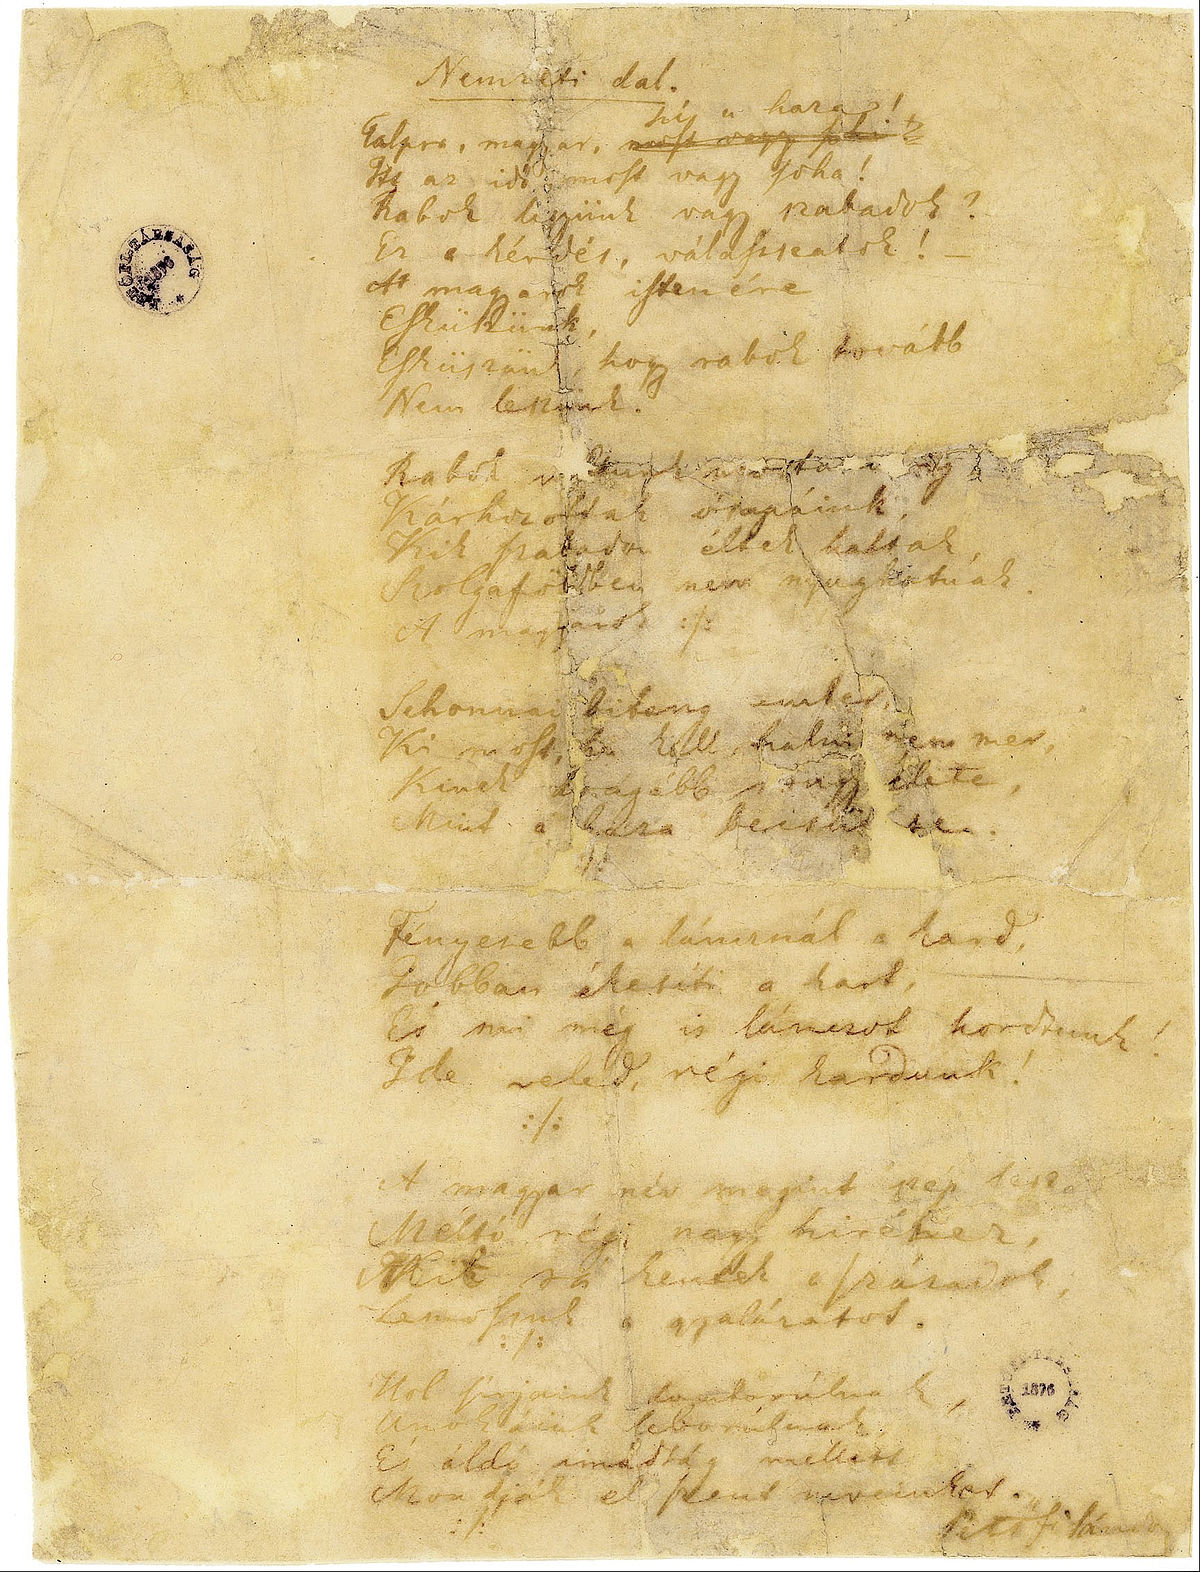 Nemzeti dal.
hí a haza!
Talpra, magyar, most vagy soha
Itt az idő, most vagy soha!
Rabok legyünk vagy szabadok?
Ez a kérdés, válasszatok! –
A magyarok istenére
Esküszünk,
Esküszünk, hogy rabok tovább
Nem leszünk!
Rabok voltunk mostanáig,
Kárhozottak ősapáink,
Kik szabadon éltek haltak,
Szolgaföldben nem nyughatnak.
A magyarok :/:
Sehonnai bitang ember,
Ki most, ha kell, halni nem mer,
Kinek drágább rongy élete,
Mint a haza becsülete.
:/:
Fényesebb a láncznál a kard,
Jobban ékesíti a kart,
És mi még is lánczot hordtunk!
Ide veled, régi kardunk!
:/:
A magyar név megint szép lesz
Méltó régi nagy hiréhez,
Mit rá kentek a századok,
Lemossuk a gyalázatot.
:/:
Hol sírjaink domborúlnak,
Unokáink leborúlnak,
És áldó imádság mellett
Mondják el szent neveinket.
:/:
Petőfi Sándor
1876